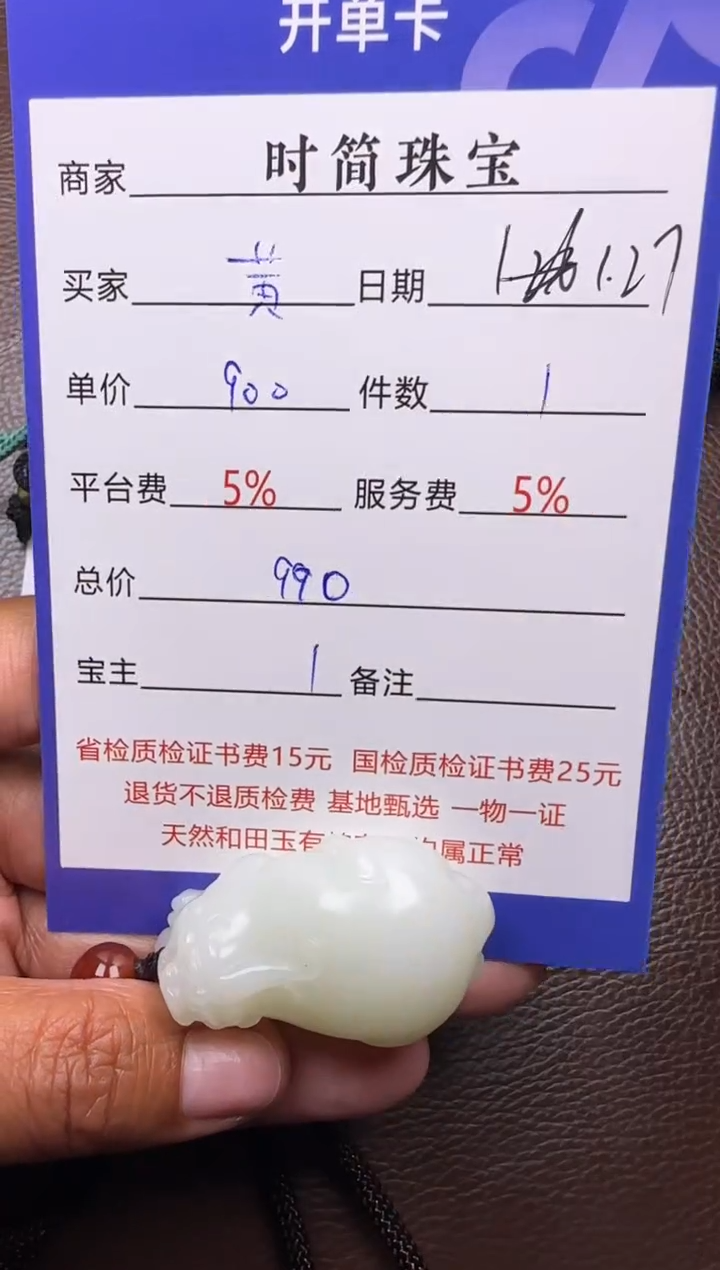 开单卡
商家 时简珠宝
买家 黄 日期 1.27
单价 900 件数 1
平台费 5% 服务费 5%
总价 990
宝主 1 备注
省检质检证书费15元 国检质检证书费25元
退货不退质检费 基地甄选 一物一证
天然和田玉有 属正常